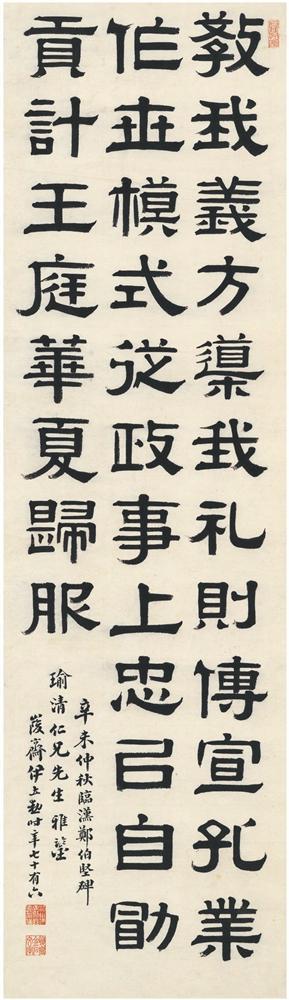 教我義方導我礼則傳宣孔業
作世模式從政事上忠以自勖
貢計王庭華夏歸服
辛未仲秋臨漢鄭伯堅碑
瑜清仁兄先生雅鑒
峻齋伊立勳時年七十有六